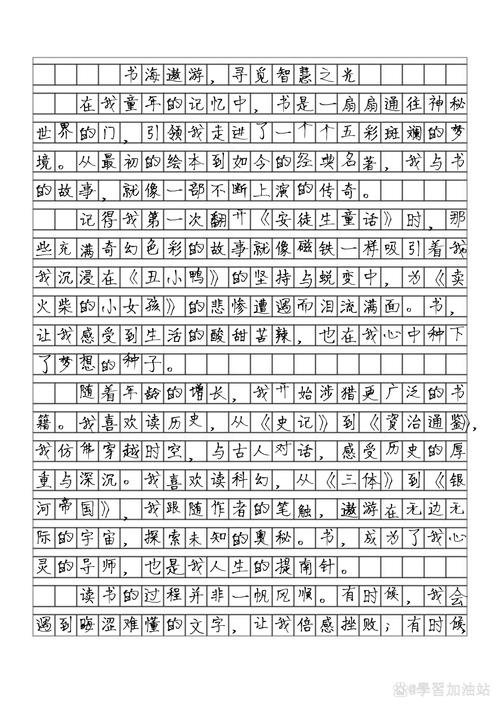 书海遨游，寻觅智慧之光
在我童年的记忆中，书是一扇扇通往神秘
世界的门，引领我走进了一个个五彩斑斓的梦
境。从最初的绘本到如今的经典名著，我与书
的故事，就像一部不断上演的传奇。
记得我第一次翻开《安徒生童话》时，那
些充满奇幻色彩的故事就像磁铁一样吸引着我
我沉浸在《丑小鸭》的坚持与蜕变中，为《卖
火柴的小女孩》的悲惨遭遇而泪流满面。书，
让我感受到生活的酸甜苦辣，也在我心中种下
了梦想的种子。
随着年龄的增长，我开始涉猎更广泛的书
籍。我喜欢读历史，从《史记》到《資治通鉴》，
我仿佛穿越时空，与古人对话，感受历史的厚
重与深沉。我喜欢读科幻，从《三体》到《银
河帝国》，我跟随作者的笔触，遨游在无边无
际的宇宙，探索未知的奥秘。书，成为了我心
灵的导师，也是我人生的指南针。
读书的过程并非一帆风顺。有时候，我会
遇到晦涩难懂的文字，让我倍感挫败；有时候
@學習加油站